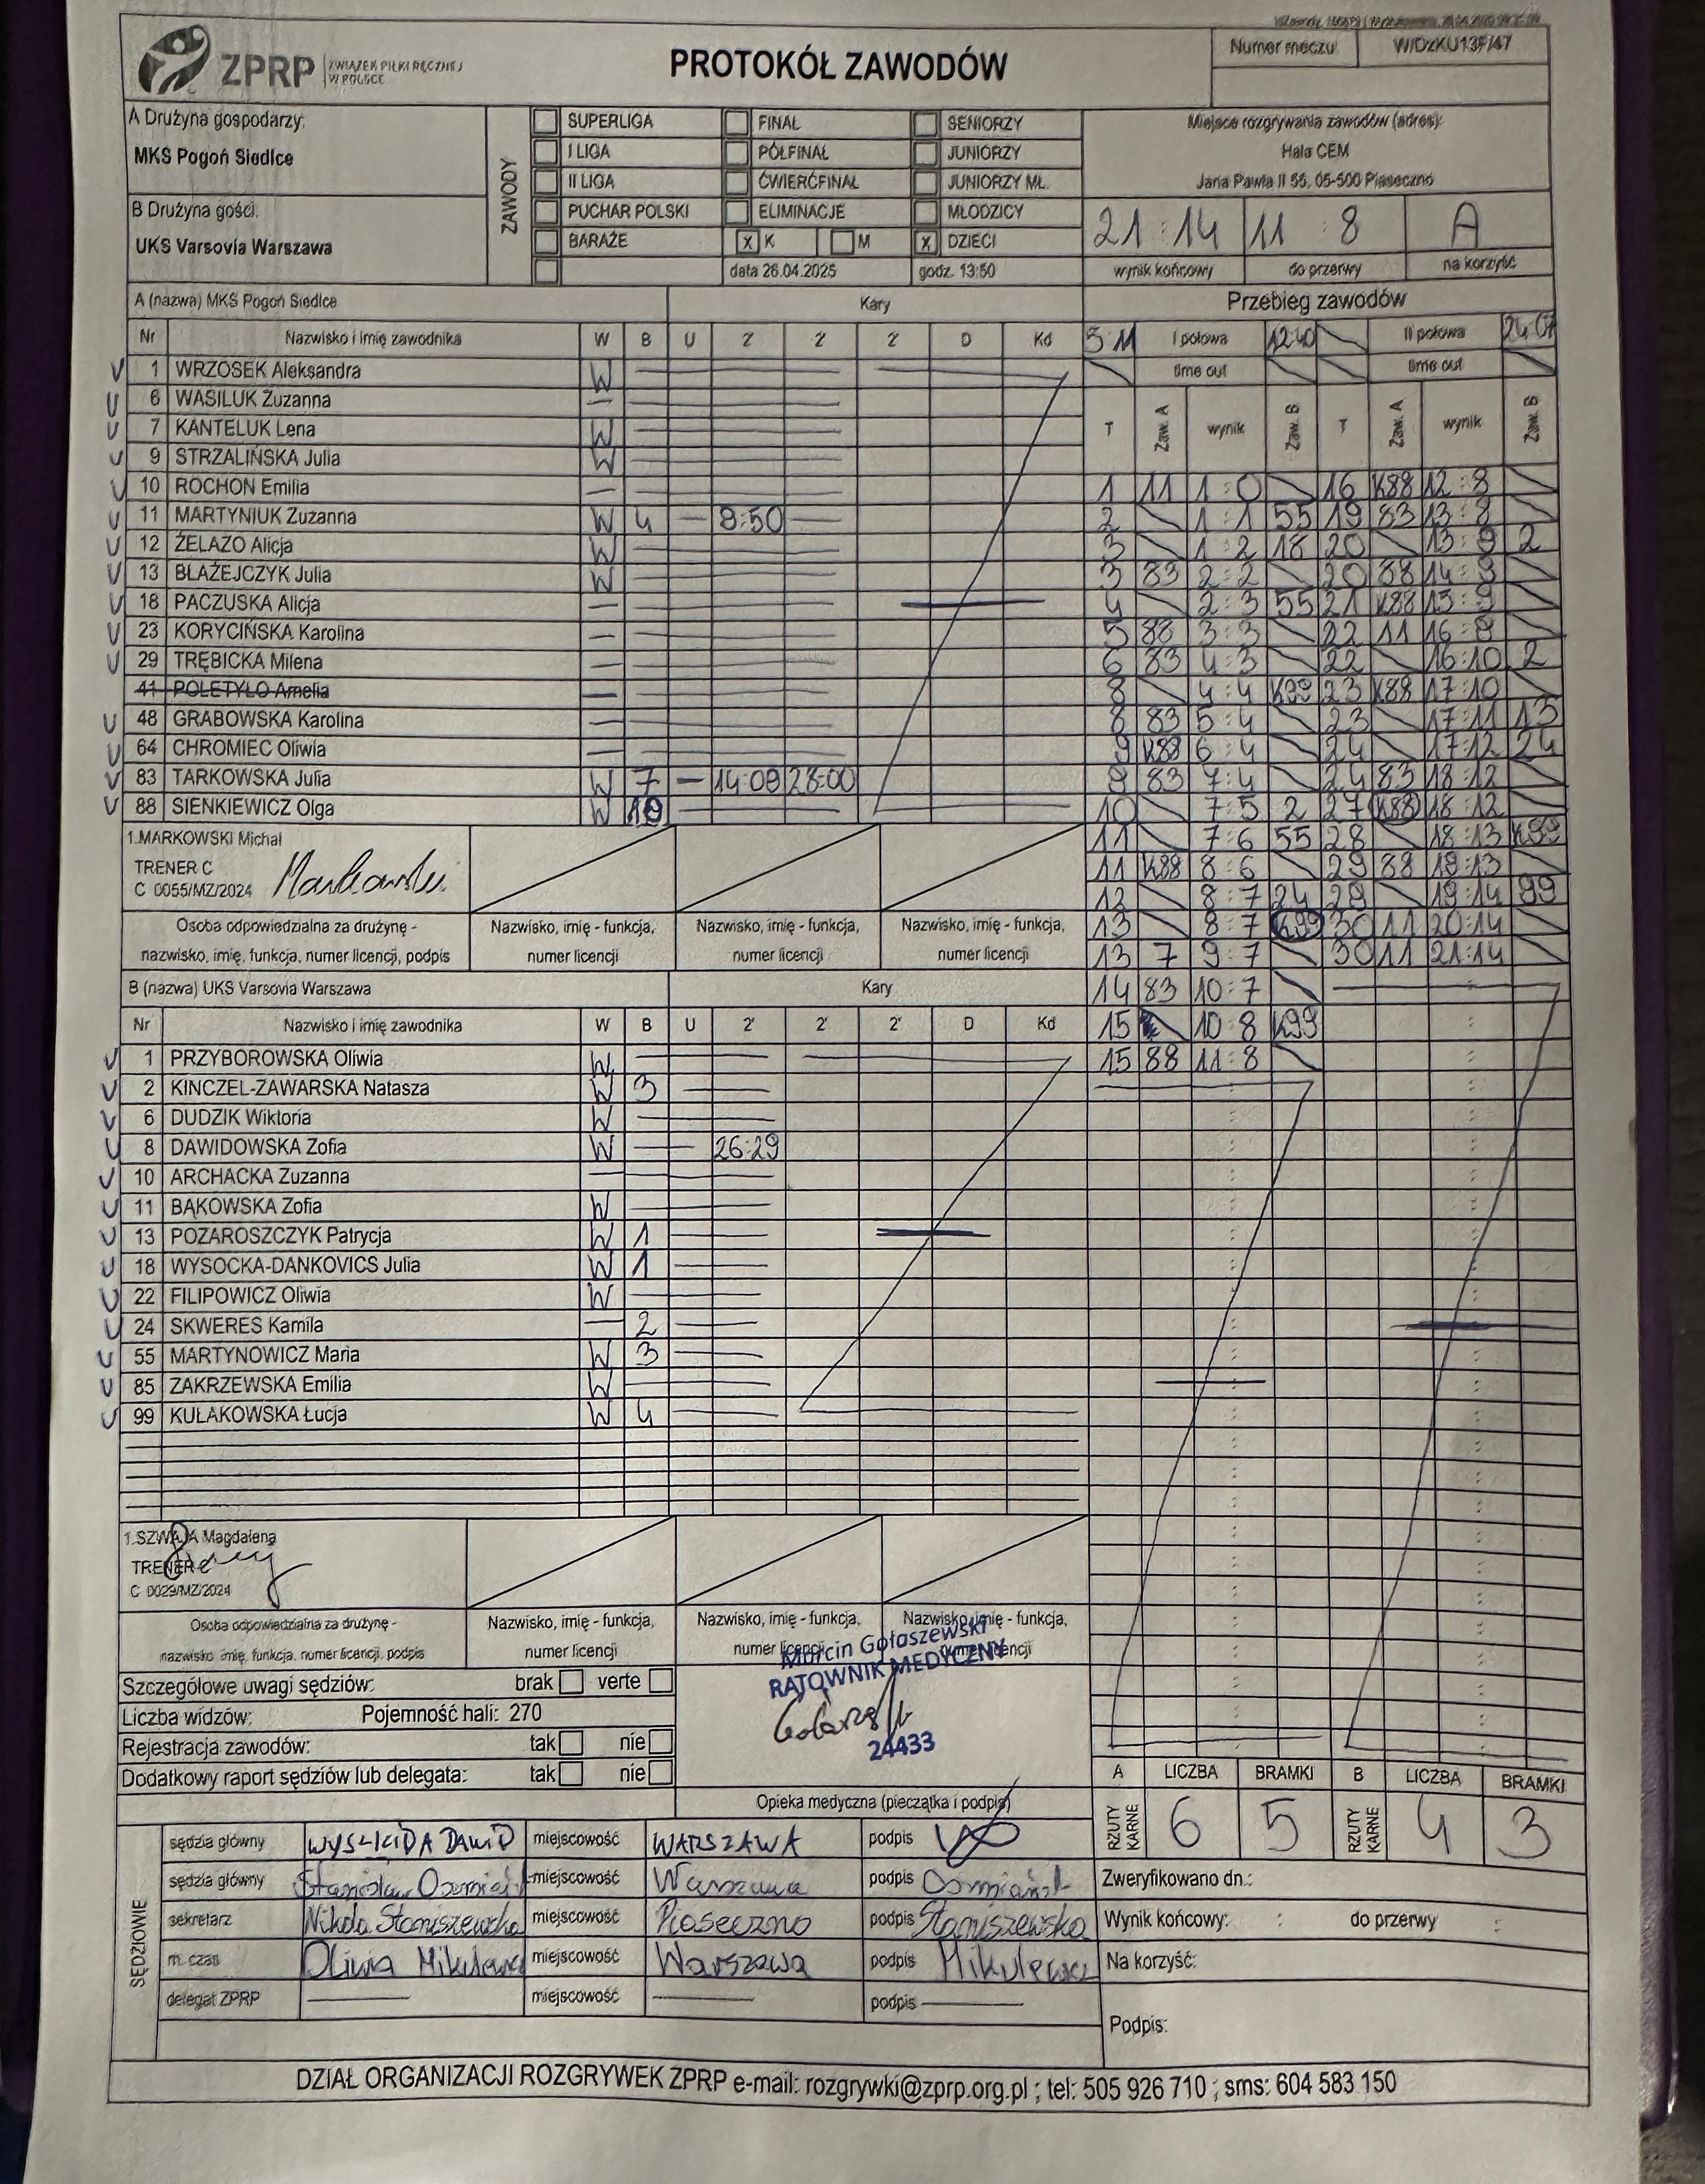 ZPRP ZWIĄZEK PIŁKI RĘCZNEJ W POLSCE
PROTOKÓŁ ZAWODÓW
Numer meczu: W/DzKU13P/47
A Drużyna gospodarzy:
MKS Pogoń Siedlce
B Drużyna gości:
UKS Varsovia Warszawa
ZAWODY
SUPERLIGA FINAŁ SENIORZY
I LIGA PÓŁFINAŁ JUNIORZY
II LIGA ĆWIERĆFINAŁ JUNIORZY MŁ.
PUCHAR POLSKI ELIMINACJE MŁODZICY
BARAŻE x K M x DZIECI
data 26.04.2025 godz. 13:50
Miejsce rozgrywania zawodów (adres):
Hala CEM
Jana Pawła II 55, 05-500 Piaseczno
21:14 11:8 A
wynik końcowy do przerwy na korzyść
A (nazwa) MKS Pogoń Siedlce Kary
Nr Nazwisko i imię zawodnika W B U 2' 2' 2' D Kd
V 1 WRZOSEK Aleksandra W
V 6 WASILUK Zuzanna —
V 7 KANTELUK Lena W
V 9 STRZALIŃSKA Julia W
V 10 ROCHON Emilia —
V 11 MARTYNIUK Zuzanna W 4 — 9:50 —
V 12 ŻELAZO Alicja W
V 13 BŁAŻEJCZYK Julia W
V 18 PACZUSKA Alicja —
V 23 KORYCIŃSKA Karolina —
V 29 TRĘBICKA Milena —
41 POLETYŁO Amelia —
V 48 GRABOWSKA Karolina —
V 64 CHROMIEC Oliwia —
V 83 TARKOWSKA Julia W 7 — 14:09 28:00
V 88 SIENKIEWICZ Olga W 10
1.MARKOWSKI Michał
TRENER C
C 0055/MZ/2024 Markowski
Osoba odpowiedzialna za drużynę - nazwisko, imię, funkcja, numer licencji, podpis
Nazwisko, imię - funkcja, numer licencji
Nazwisko, imię - funkcja, numer licencji
Nazwisko, imię - funkcja, numer licencji
B (nazwa) UKS Varsovia Warszawa Kary
Nr Nazwisko i imię zawodnika W B U 2' 2' 2' D Kd
V 1 PRZYBOROWSKA Oliwia W
V 2 KINCZEL-ZAWARSKA Natasza W 3
V 6 DUDZIK Wiktoria W
V 8 DAWIDOWSKA Zofia W — 26:29
V 10 ARCHACKA Zuzanna —
V 11 BĄKOWSKA Zofia W
V 13 POZAROSZCZYK Patrycja W 1
V 18 WYSOCKA-DANKOVICS Julia W 1
V 22 FILIPOWICZ Oliwia W
V 24 SKWERES Kamila — 2
V 55 MARTYNOWICZ Maria W 3
V 85 ZAKRZEWSKA Emilia W
V 99 KUŁAKOWSKA Łucja W 4
1.SZWAJA Magdalena
TRENER C
C 0029/MZ/2024
Osoba odpowiedzialna za drużynę - nazwisko, imię, funkcja, numer licencji, podpis
Nazwisko, imię - funkcja, numer licencji
Nazwisko, imię - funkcja, numer licencji
Nazwisko, imię - funkcja, numer licencji
Przebieg zawodów
5:11 I połowa 12:40 II połowa 24:07
time out time out
T Zaw. A wynik Zaw. B T Zaw. A wynik Zaw. B
1 11 1:0 16 K88 12:8
2 1:1 55 19 83 13:8
3 1:2 18 20 13:9 2
3 83 2:2 20 88 14:9
4 2:3 55 21 K88 15:9
5 88 3:3 22 11 16:9
6 83 4:3 22 16:10 2
8 4:4 K99 23 K88 17:10
8 83 5:4 23 17:11 13
9 K88 6:4 24 17:12 24
9 83 7:4 24 83 18:12
10 7:5 2 27 K88 18:12
11 7:6 55 28 18:13 K99
11 K88 8:6 29 88 19:13
12 8:7 24 29 19:14 99
13 8:7 K99 30 11 20:14
13 7 9:7 30 11 21:14
14 83 10:7
15 10:8 K99
15 88 11:8
Szczegółowe uwagi sędziów: brak verte
Liczba widzów: Pojemność hali: 270
Rejestracja zawodów: tak nie
Dodatkowy raport sędziów lub delegata: tak nie
Marcin Gołaszewski
RATOWNIK MEDYCZNY
24433
Opieka medyczna (pieczątka i podpis)
A LICZBA BRAMKI B LICZBA BRAMKI
RZUTY KARNE 6 5 RZUTY KARNE 4 3
SĘDZIOWIE
sędzia główny DAWID miejscowość WARSZAWA podpis
sędzia główny Stanisław miejscowość Warszawa podpis
sekretarz Nikola Staniszewska miejscowość Piaseczno podpis Staniszewska
m. czas Oliwia miejscowość Warszawa podpis
delegat ZPRP — miejscowość — podpis —
Zweryfikowano dn.:
Wynik końcowy: : do przerwy :
Na korzyść:
Podpis:
DZIAŁ ORGANIZACJI ROZGRYWEK ZPRP e-mail: rozgrywki@zprp.org.pl ; tel: 505 926 710 ; sms: 604 583 150